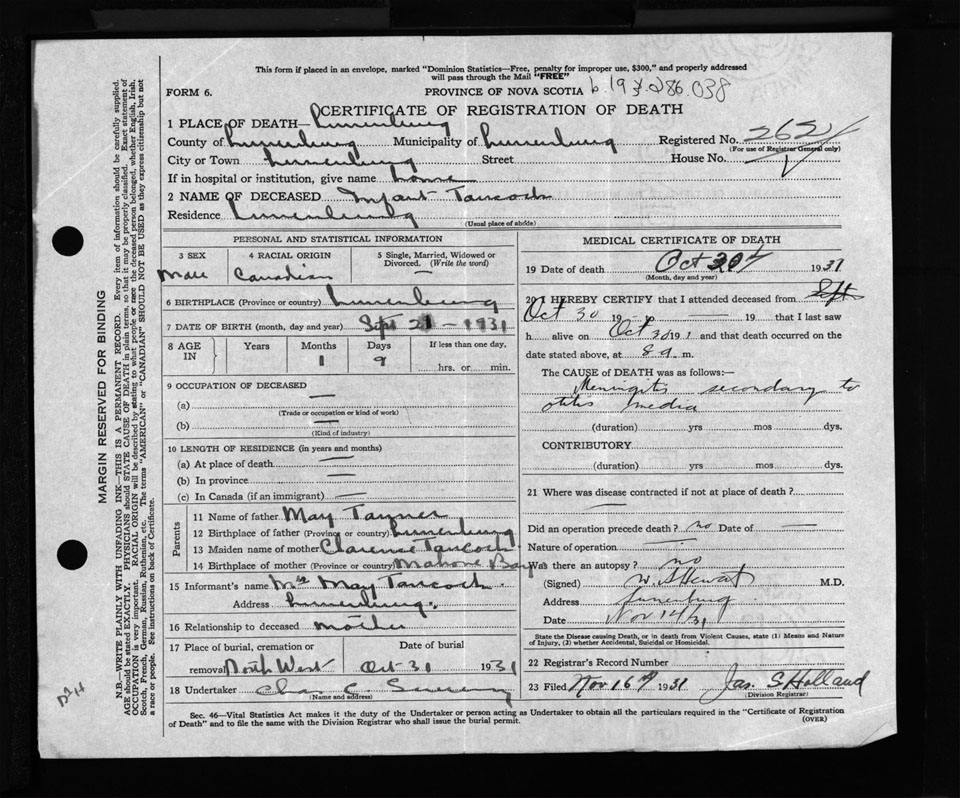 This form if placed in an envelope, marked "Dominion Statistics—Free, penalty for improper use, $300," and properly addressed
will pass through the Mail "FREE"
FORM 6.
PROVINCE OF NOVA SCOTIA
CERTIFICATE OF REGISTRATION OF DEATH
1 PLACE OF DEATH— Lunenburg
County of Lunenburg Municipality of Lunenburg Registered No. 262
(For use of Registrar General only)
City or Town Lunenburg Street House No.
If in hospital or institution, give name home
2 NAME OF DECEASED Infant Tancock
Residence Lunenburg
(Usual place of abode)
PERSONAL AND STATISTICAL INFORMATION
3 SEX 4 RACIAL ORIGIN 5 Single, Married, Widowed or Divorced. (Write the word)
Male Canadian —
6 BIRTHPLACE (Province or country) Lunenburg
7 DATE OF BIRTH (month, day and year) Sept 21 – 1931
8 AGE IN Years Months Days If less than one day,
1 9 hrs. or min.
9 OCCUPATION OF DECEASED
(a) —
(Trade or occupation or kind of work)
(b) —
(Kind of industry)
10 LENGTH OF RESIDENCE (in years and months)
(a) At place of death —
(b) In province —
(c) In Canada (if an immigrant) —
Parents
11 Name of father May Tanner
12 Birthplace of father (Province or country) Lunenburg
13 Maiden name of mother Clarence Tancock
14 Birthplace of mother (Province or country) Mahone Bay
15 Informant's name Mrs May Tancock
Address Lunenburg
16 Relationship to deceased mother
17 Place of burial, cremation or removal North West
Date of burial Oct 31 1931
18 Undertaker Chas C.
(Name and address)
MEDICAL CERTIFICATE OF DEATH
19 Date of death Oct 30 1931
(Month, day and year)
20 I HEREBY CERTIFY that I attended deceased from
Oct 30 19 — 19 that I last saw
h alive on Oct 30 19 and that death occurred on the
date stated above, at 8 a. m.
The CAUSE of DEATH was as follows:—
Meningitis secondary to
otitis media
(duration) yrs mos dys.
CONTRIBUTORY
(duration) yrs mos dys.
21 Where was disease contracted if not at place of death?
Did an operation precede death? no Date of —
Nature of operation —
Was there an autopsy? no
(Signed) W. Stewart M.D.
Address Lunenburg
Date Nov 14/31
State the Disease causing Death, or in death from Violent Causes, state (1) Means and Nature
of Injury, (2) whether Accidental, Suicidal or Homicidal.
22 Registrar's Record Number
23 Filed Nov 16 1931 Jas. S Holland
(Division Registrar)
Sec. 46—Vital Statistics Act makes it the duty of the Undertaker or person acting as Undertaker to obtain all the particulars required in the "Certificate of Registration
of Death" and to file the same with the Division Registrar who shall issue the burial permit.
(OVER)
MARGIN RESERVED FOR BINDING
N.B.—WRITE PLAINLY WITH UNFADING INK—THIS IS A PERMANENT RECORD. Every item of information should be carefully supplied.
AGE should be stated EXACTLY. PHYSICIANS should STATE CAUSE OF DEATH in plain terms, so that it may be properly classified. Exact statement of
OCCUPATION is very important. RACIAL ORIGIN will be described by stating to what people or race the deceased person belonged, whether English, Irish,
Scotch, French, German, Russian, Ruthenian, etc. The terms "AMERICAN" or "CANADIAN" SHOULD NOT BE USED as they express citizenship but not
a race or people. See instructions on back of Certificate.